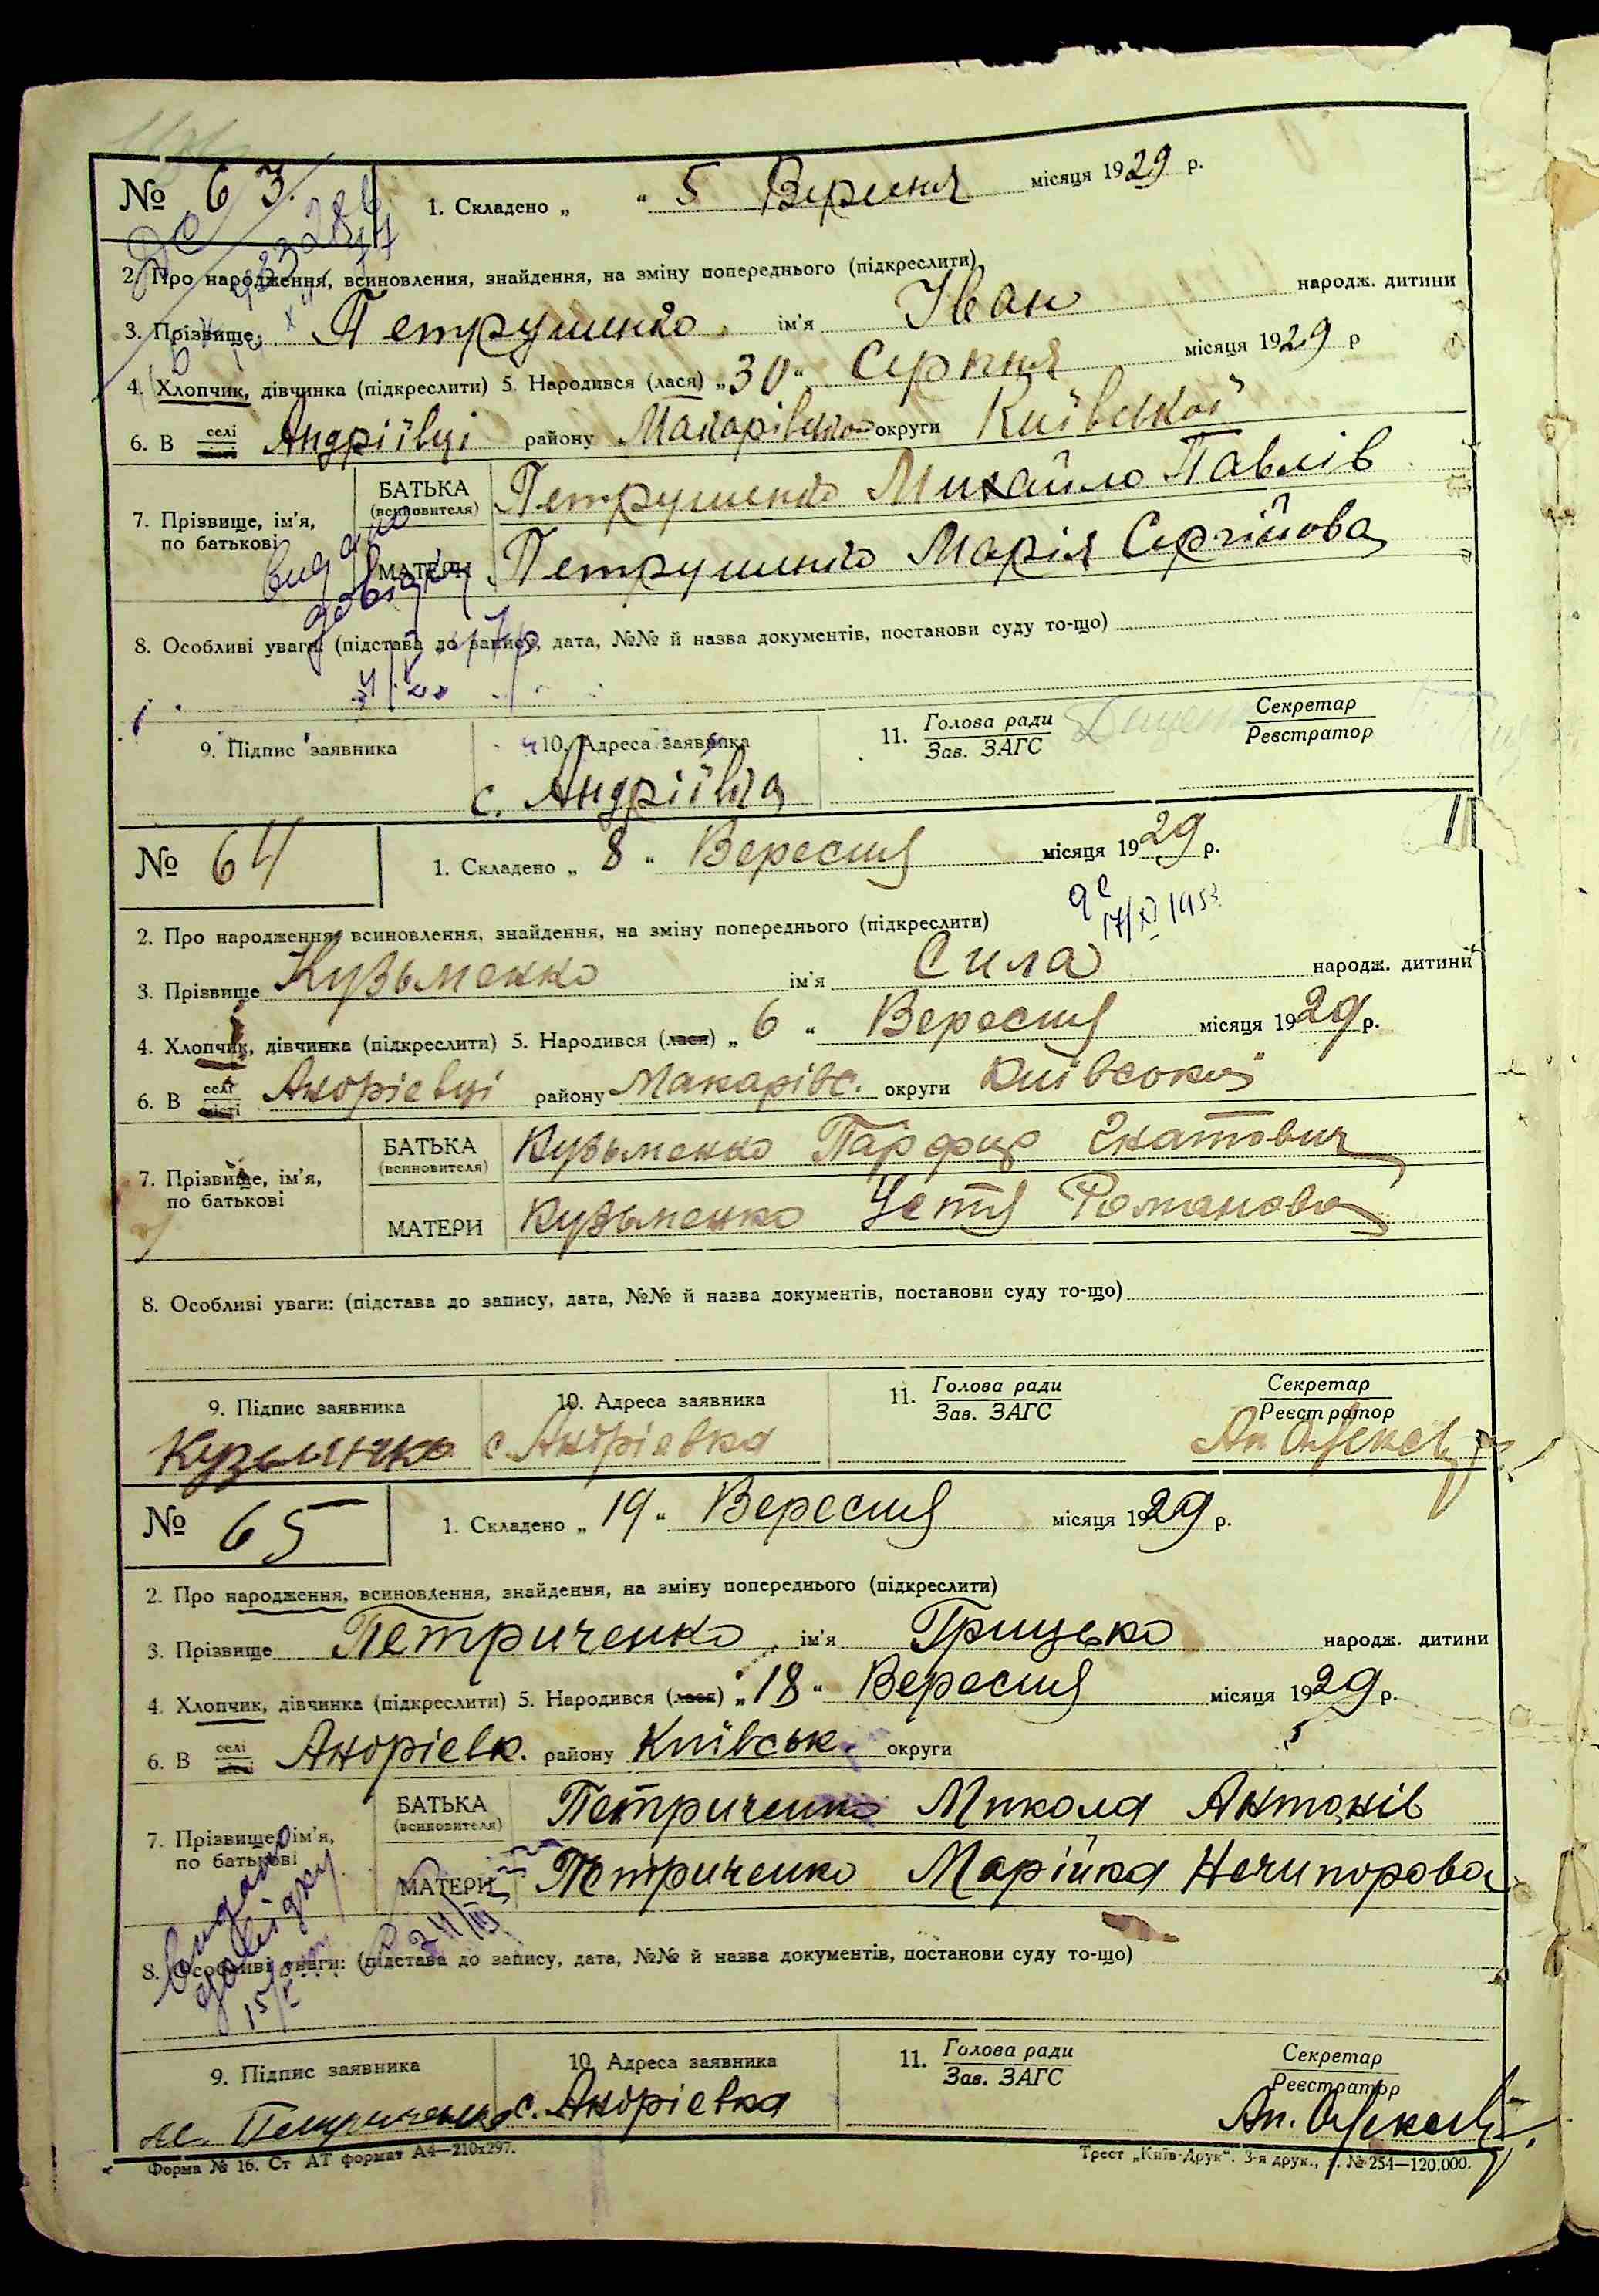 № 63.
1. Складено „ “ 5 Вересня місяця 1929 р.
2. Про народження, всиновлення, знайдення, на зміну попереднього (підкреслити)
3. Прізвище Петрушенко ім'я Іван народж. дитини
4. Хлопчик, дівчинка (підкреслити) 5. Народився (лася) „30“ Серпня місяця 1929 р
6. В селі місті Андріївці району Макарівсько округи Київської
7. Прізвище, ім'я, по батькові
БАТЬКА (всиновителя) Петрушенко Михайло Павлів
МАТЕРИ Петрушенко Марія Сергійова
видано довідку
8. Особливі уваги: (підстава до запису, дата, №№ й назва документів, постанови суду то-що)
9. Підпис заявника
10. Адреса заявника
с. Андріївка
11. Голова ради
Зав. ЗАГС
Секретар
Реєстратор
№ 64
1. Складено „ 8 “ Вересня місяця 1929 р.
17/XI 1953
2. Про народження, всиновлення, знайдення, на зміну попереднього (підкреслити)
3. Прізвище Кузьменко ім'я Сила народж. дитини
4. Хлопчик, дівчинка (підкреслити) 5. Народився (лася) „ 6 “ Вересня місяця 1929 р.
6. В селі місті Андріевці району Макарівс. округи Київської
7. Прізвище, ім'я, по батькові
БАТЬКА (всиновителя) Кузьменко Гнатович
МАТЕРИ Кузьменко Устя Романова
8. Особливі уваги: (підстава до запису, дата, №№ й назва документів, постанови суду то-що)
9. Підпис заявника
Кузьменко
10. Адреса заявника
с. Андріевка
11. Голова ради
Зав. ЗАГС
Секретар
Реєстратор
№ 65
1. Складено „ 19 “ Вересня місяця 1929 р.
2. Про народження, всиновлення, знайдення, на зміну попереднього (підкреслити)
3. Прізвище Петриченко ім'я Грицько народж. дитини
4. Хлопчик, дівчинка (підкреслити) 5. Народився (лася) „18“ Вересня місяця 1929 р.
6. В селі місті Андріевк. району Київськ. округи
7. Прізвище, ім'я, по батькові
БАТЬКА (всиновителя) Петриченко Микола Антонів
МАТЕРИ Петриченко Марійка Нечипорова
видано довідку
8. Особливі уваги: (підстава до запису, дата, №№ й назва документів, постанови суду то-що)
9. Підпис заявника
м. Петриченко
10. Адреса заявника
с. Андріевка
11. Голова ради
Зав. ЗАГС
Секретар
Реєстратор
Форма № 16. Ст АТ формат А4—210х297.
Трест „Київ-Друк“. 3-я друк., з. № 254—120.000.